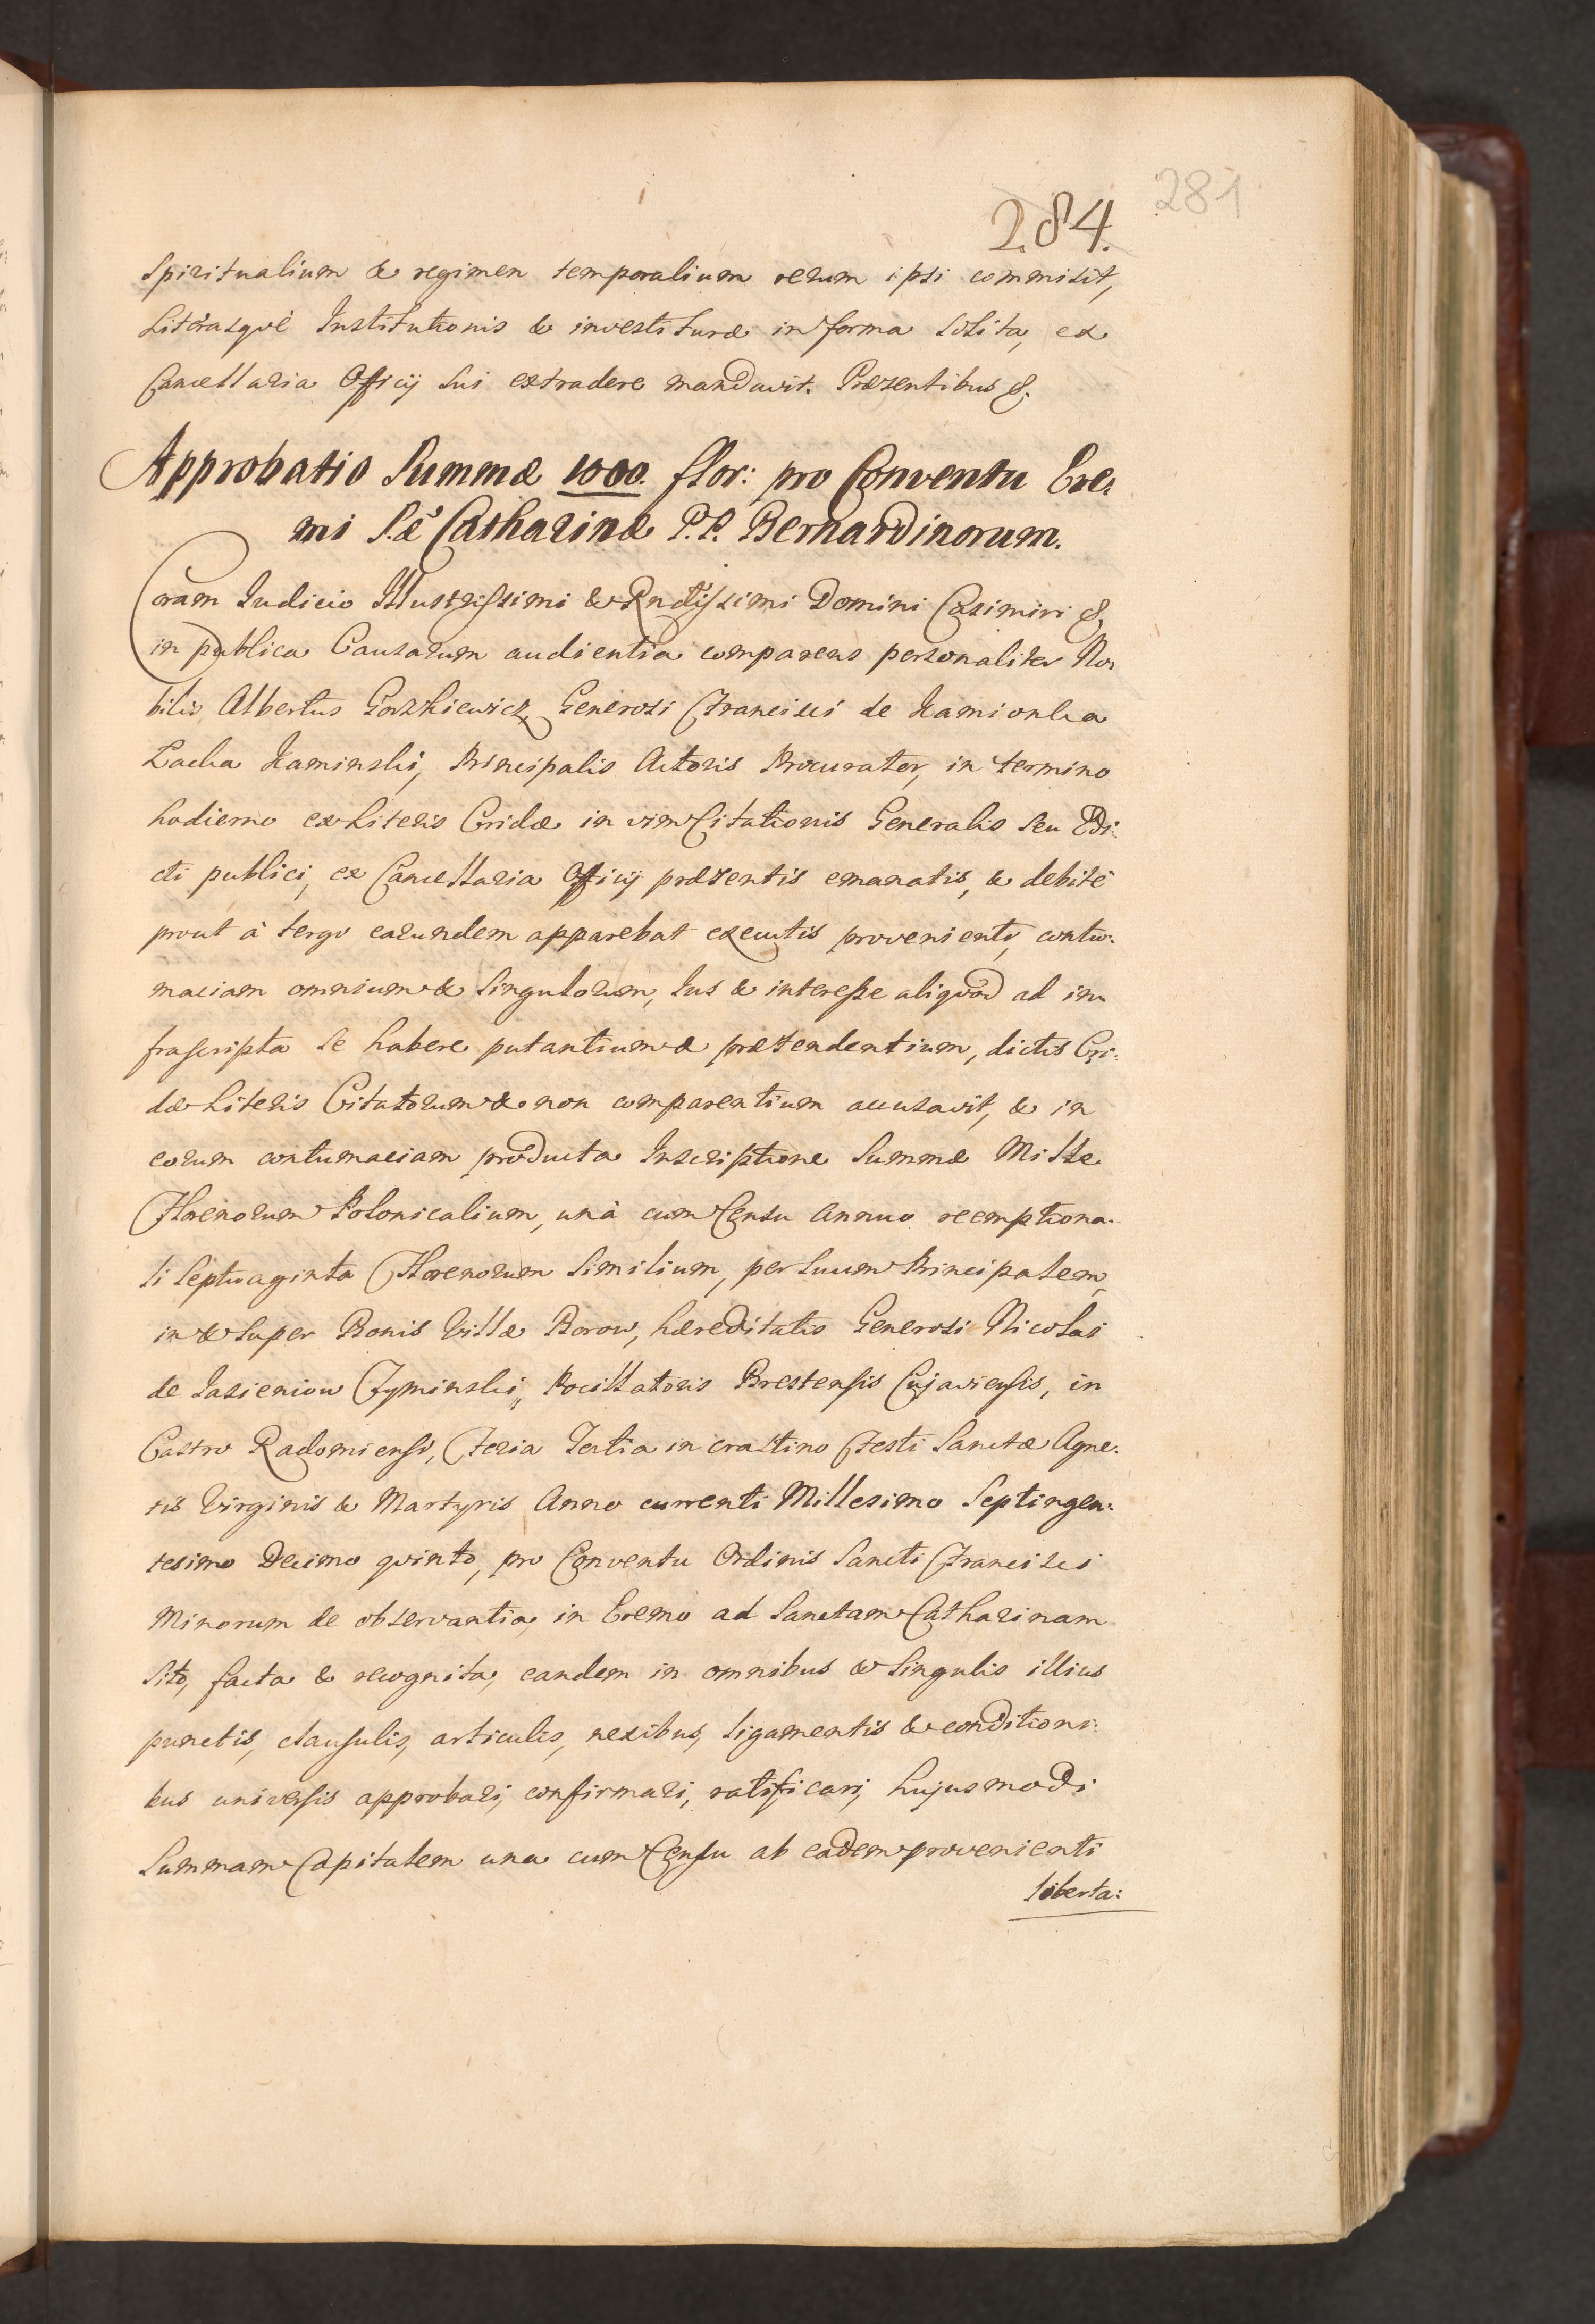 284.
281
Spiritualium & regimen temporalium rerum ipsi commisit,
Literasquè Institutionis & investituræ in forma solita, ex
Cancellaria Officij sui extradere mandavit. Præsentibus &.
Approbatio Summæ 1000. flor: pro Conventu Ere:
mi S.æ Catharinæ P.P. Bernardinorum.
Coram Iudicio Illustrissimi & Rndissimi Domini Casimiri &
in publica Causarum audientia comparens personaliter No:
bilis Albertus Gorzkiewicz, Generosi Francisci de Kamionka
Lacka Kaminski, Principalis Actoris Procurator, in termino
hodierno ex Literis Cridæ in vim Citationis Generalis seu Edi:
cti publici, ex Cancellaria Officij præsentis emanatis, & debitè
prout à tergo earundem apparebat executis proveniente, contu:
maciam omnium & singulorum, Ius & interesse aliquod ad in:
frascripta se habere putantium & prætendentium, dictis Cri:
dæ Literis Citatorum & non comparentium accusavit, & in
eorum contumaciam producta Inscriptione Summæ Mille
Florenorum Polonicalium, unà cum Censu annuo reemptiona:
li Septuaginta Florenorum similium, per suum Principalem,
in & super Bonis Villæ Borow, hæreditatis Generosi Nicolai
de Jasieniow Czyminski, Pocillatoris Brestensis Cujaviensis, in
Castro Radomiensi, Feria Tertia in crastino Festi Sanctæ Agne:
tis Virginis & Martyris Anno currenti Millesimo Septingen:
tesimo Decimo quinto, pro Conventu Ordinis Sancti Francisci
Minorum de observantia, in Eremo ad Sanctam Catharinam
sito, facta & recognita, eandem in omnibus & singulis illius
punctis, clausulis, articulis, nexibus, ligamentis & conditioni:
bus universis approbari, confirmari, ratificari, hujusmodi
Summam Capitalem una cum Censu ab eadem provenienti
liberta: